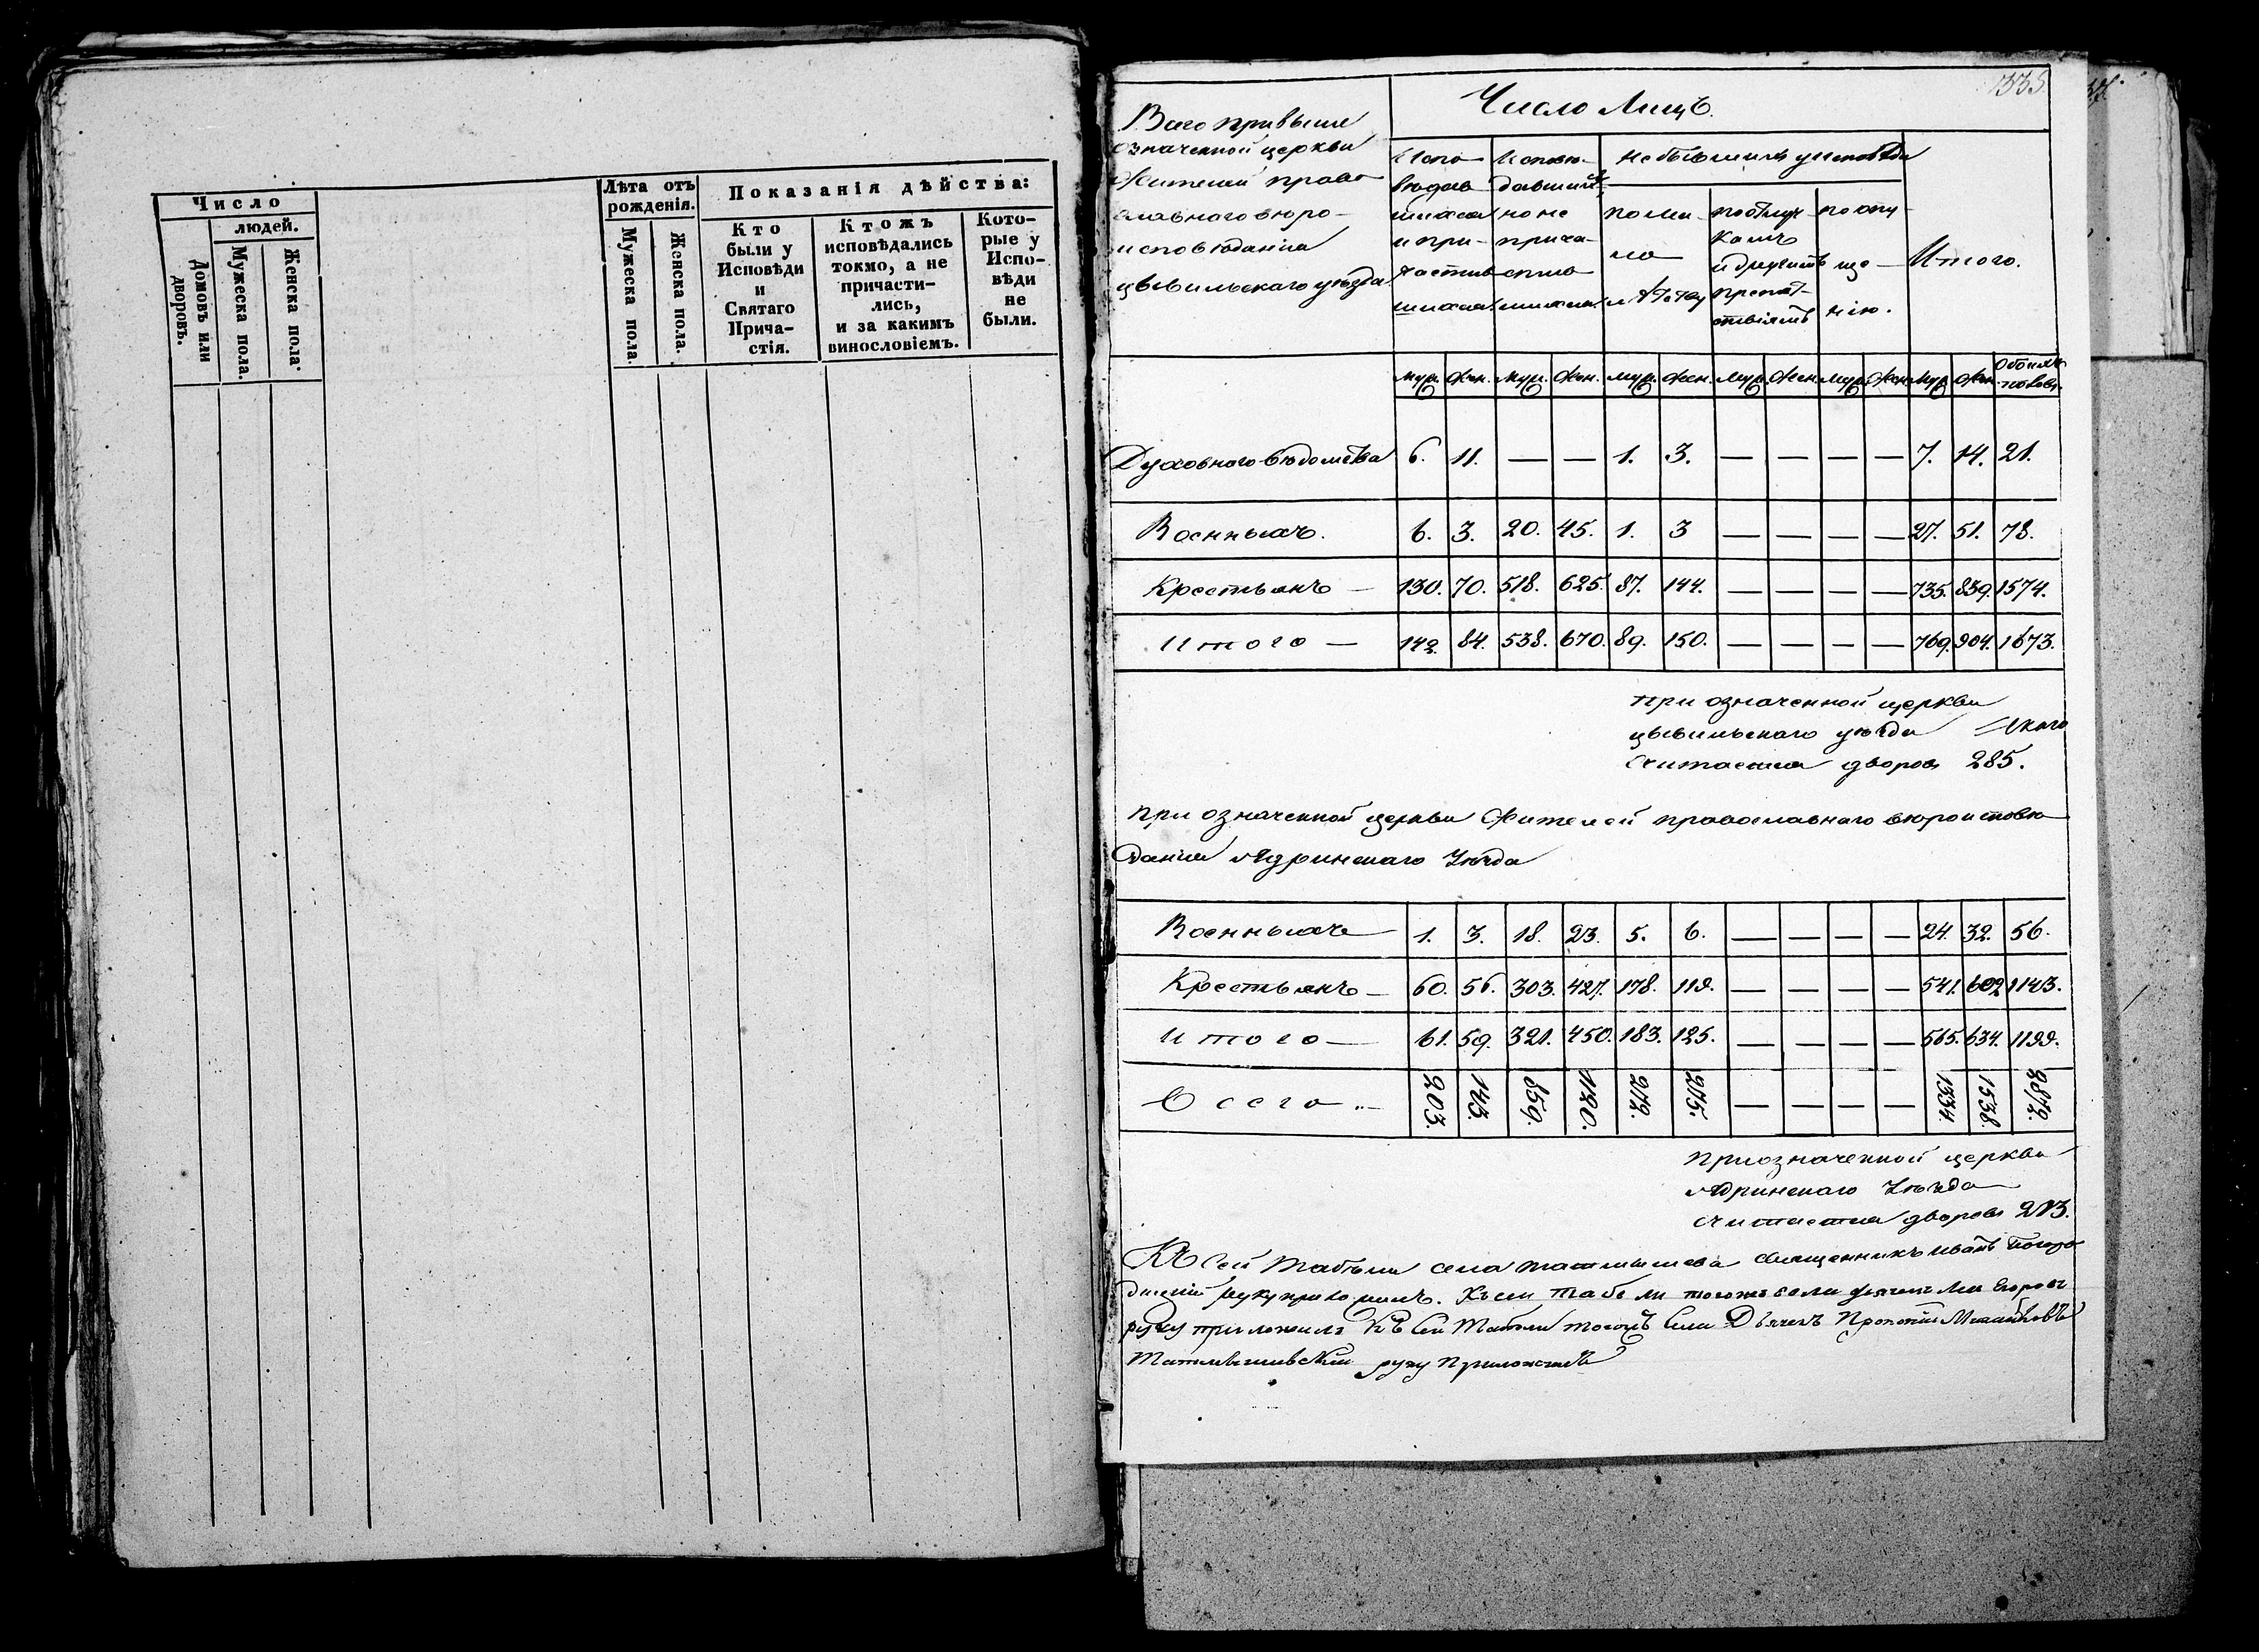 Число
людей.
Домовъ или дворовъ.
Мужеска пола.
Женска пола.
Лѣта отъ
рожденія.
Мужеска пола.
Женска пола.
Показанія дѣйства:
Кто
были у
Исповѣди
и
Святаго
Прича-
стія.
Ктожъ
исповѣдались
токмо, а не
причасти-
лись,
и за какимъ
винословіемъ.
Кото-
рые у
Испо-
вѣди
не
были.
Всего при выше
означенной церкви
жителей право
славнаго вѣро-
исповѣданія
Цывильскаго уѣзда
Число лицъ.
Испо
вѣдав
шихся
и при-
частив
шихся.
Исповѣ-
давшихся
но не
прича-
стив
шихся.
не бывшихъ у исповѣди
по ма-
ло
лѣтству
по отлуч
камъ
и другимъ
препят-
ствіямъ
по опу
ще-
нію.
Итого.
муж. жен. муж. жен. муж. жен. муж. жен. муж. жен. муж. жен. Обоихъ половъ.
Духовного вѣдомства 6. 11. — — 1. 3. — — — — 7. 14. 21.
Военныхъ. 6. 3. 20. 45. 1. 3 — — — — 27. 51. 78.
Крестьянъ — 130. 70. 518. 625. 87. 144. — — — — 735. 839. 1574.
Итого — 142. 84. 538. 670. 89. 150. — — — — 769. 904. 1673.
при означенной церкви
Цывильскаго уѣзда
считается дворовъ 285.
При означенной церкви жителей православнаго вѣроисповѣ
данія Ядринскаго Уѣзда
Военныхъ 1. 3. 18. 23. 5. 6. — — — — 24. 32. 56.
Крестьянъ — 60. 56. 303. 427. 178. 119. — — — — 541. 602 1143.
Итого — 61. 59. 321. 450. 183. 125. — — — — 565. 634. 1199.
Всего — 203. 143. 859. 1120. 272. 275. — — — — 1334. 1538. 2872.
При означенной церкви
Ядринскаго Уѣзда
считается дворовъ 213.
Къ сей табели села священникъ Иванъ
руку приложилъ. Къ сей табели тогожъ села
руку приложилъ Къ сей табели тогожъ села Дьячекъ Прокопій
руку приложилъ